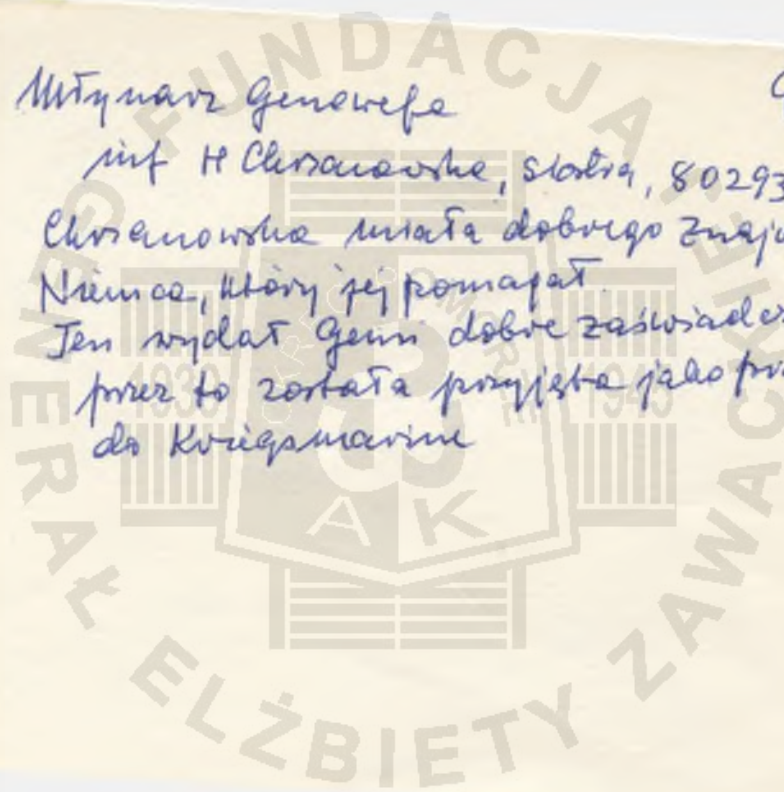 Młynarz Genowefa
inf H Chrzanowska, siostra, 80293
Chrzanowska miała dobrego znajo
Niemca, który jej pomagał.
Ten wydał Geni dobre zaświadcz
przez to została przyjęta jako pr
do Kriegsmarine
FUNDACJA
GENERAŁ ELŻBIETY ZAWACKIEJ
ARCHIWUM POMORZE
1939 1945
AK